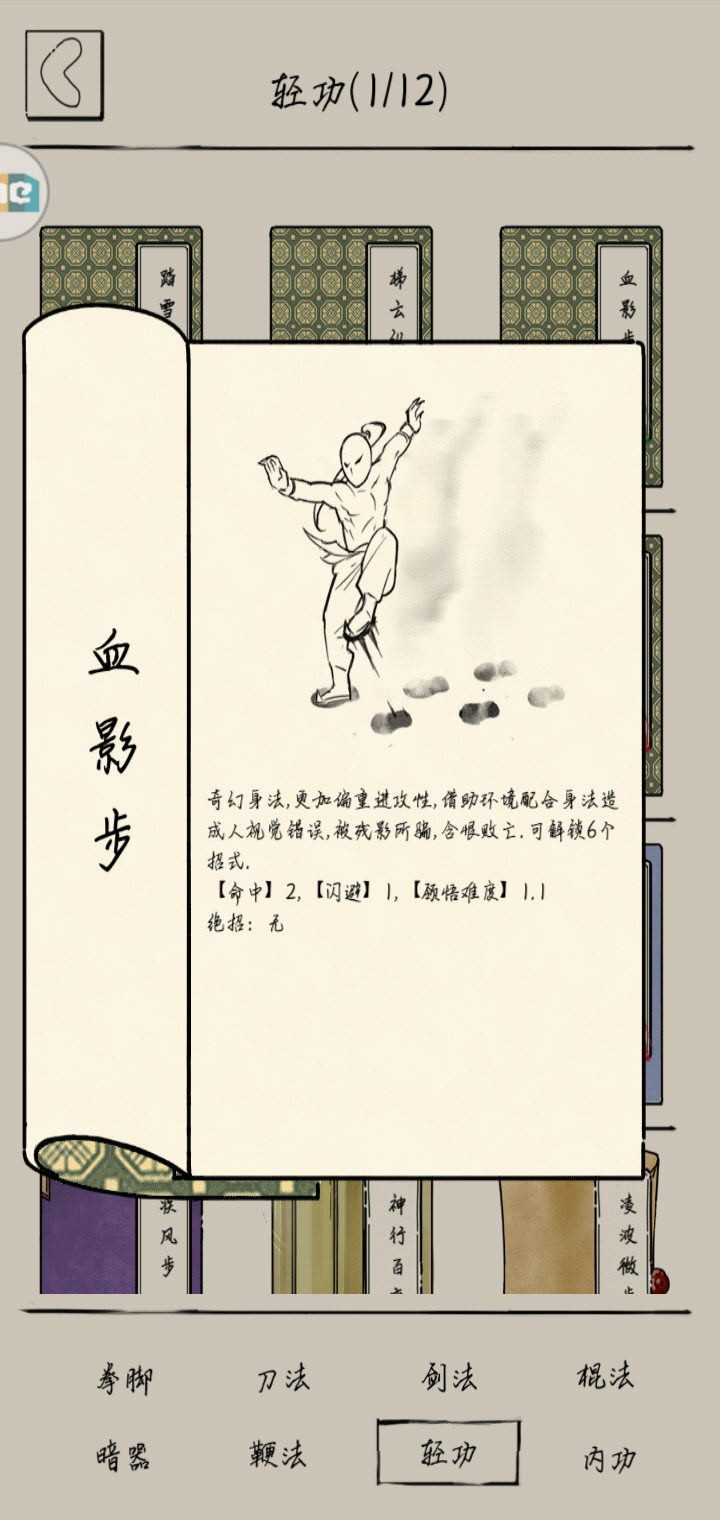 轻功(1/12)
踏雪
梯云纵
血影步
血影步
奇幻身法,更加偏重进攻性,借助环境配合身法造
成人视觉错误,被我影所骗,含恨败亡.可解锁6个
招式.
【命中】2,【闪避】1,【领悟难度】1.1
绝招: 无
疾风步
神行百
凌波微步
拳脚 刀法 剑法 棍法
暗器 鞭法 轻功 内功